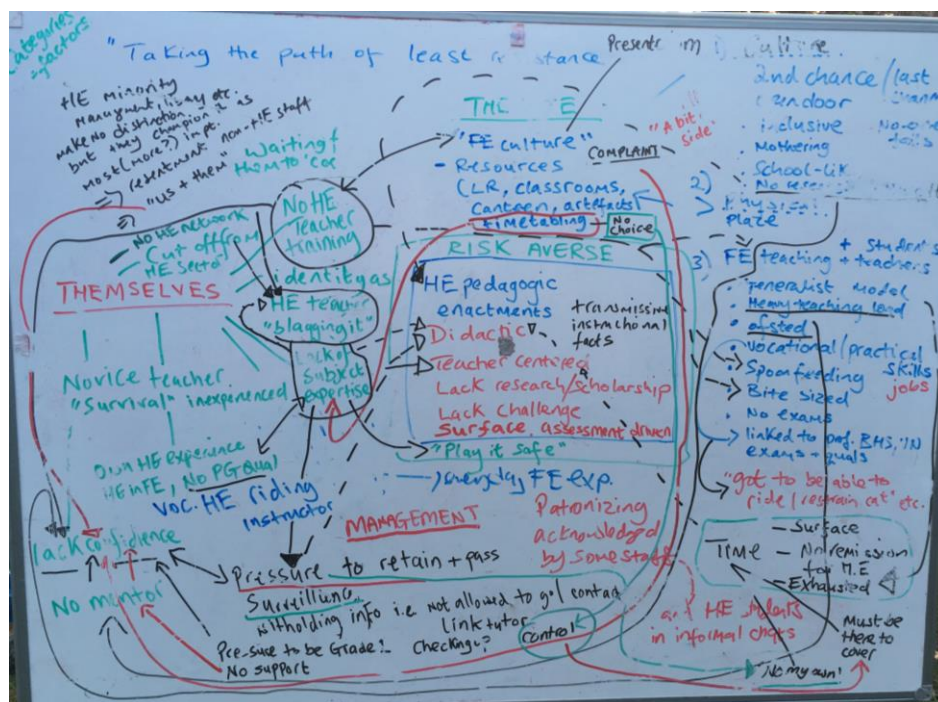 Categories
factors
"Taking the path of least resistance
HE minority
Managment, library etc.
make no distinction
but they champion it as
most (more?) impt.
resentment non-HE staff
"us + them"
Waiting f
them to
THE E
"FE culture"
- Resources
CLR, classrooms,
canteen, artefacts
timetabling
No
choice
COMPLAINT
"A bit
side
1) Culture
2nd chance / last
inclusive
Mothering
School-Lik
2)
3) FE teaching + students
+ teachers
generalist model
Heavy teaching load
ofsted
vocational/practical
skills
jobs
Spoonfeeding
Bite sized
No exams
linked to prof. BHS, VN
exams + quals
"got to be able to
ride / restrain cat" etc.
No HE
Teacher
training
No HE network
Cut off from
HE sector
THEMSELVES
identity as
HE teacher
"blagging it"
Lack of
Subject
expertise
Novice teacher
"Survival" inexperienced
Own HE experience
HE in FE, No PG Qual
Voc. HE riding
instructor
RISK AVERSE
HE pedagogic
enactments
transmissive
instructional
facts
Didactic
Teacher centered
Lack research/scholarship
Lack challenge
Surface, assessment driven
"Play it safe"
everyday FE exp.
MANAGEMENT
Patronizing
acknowledged
by some staff
and HE students
in informal chats
lack confidence
No mentor
Pressure to retain + pass
Surveillence
Witholding info i.e not allowed to go/contact
link tutor
Checking?
control
Pressure to be Grade 1
No support
TIME
- Surface
- No remission
for H.E
- Exhausted
Must be
there to
cover
No my own!